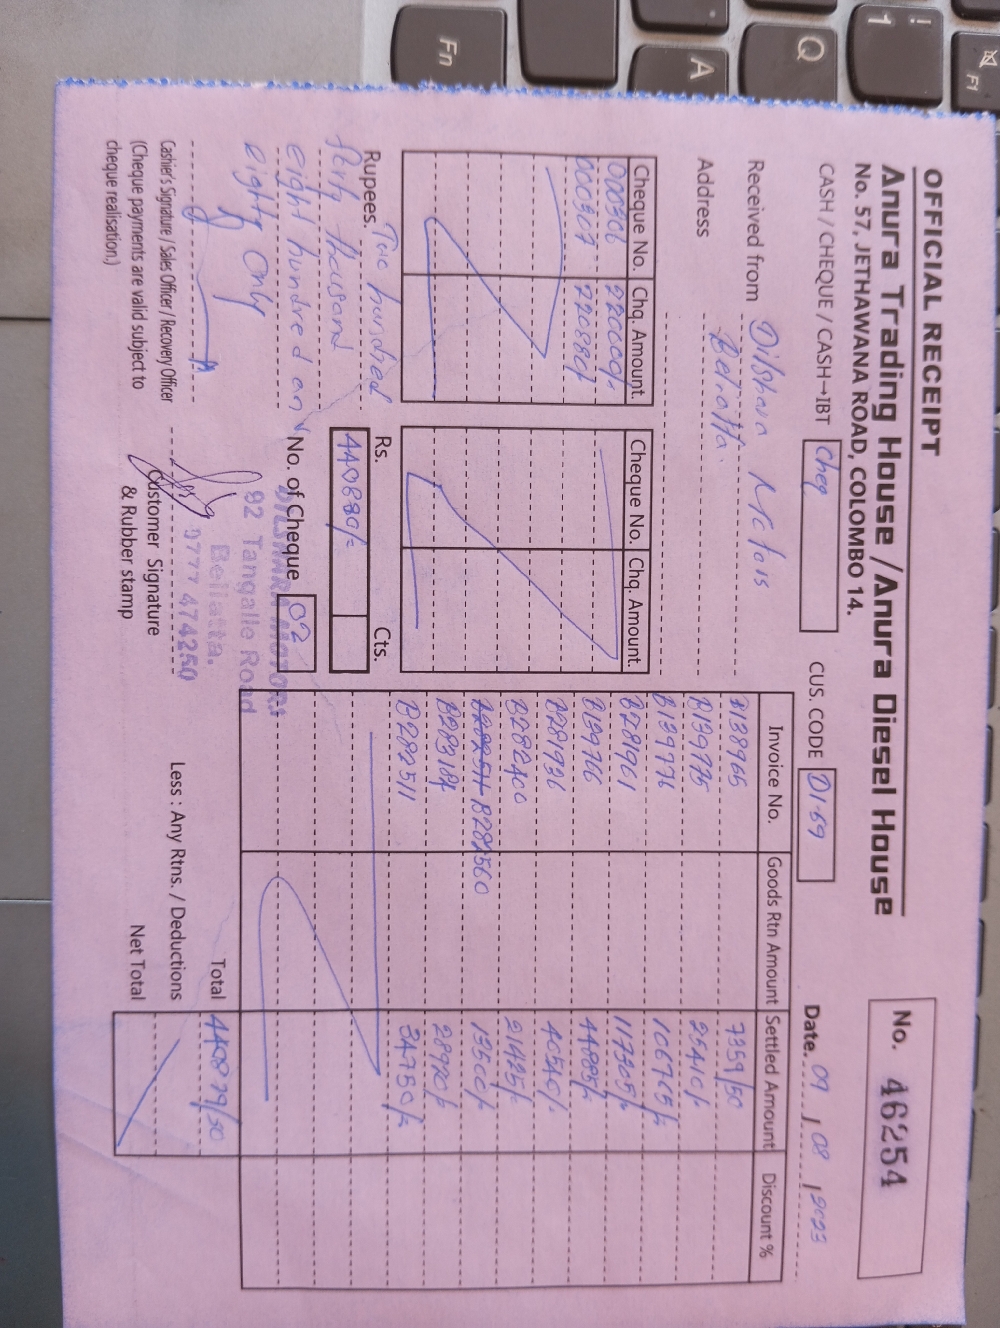 OFFICIAL RECEIPT
Anura Trading House / Anura Diesel House
No. 57, JETHAWANA ROAD, COLOMBO 14.
No. 46254
CASH / CHEQUE / CASH→IBT Cheq
CUS. CODE D1-69
Date. 09 / 08 / 2023
Received from Dilshara Motors
Address Beliatta.
Cheque No. Chq. Amount
000306 220000/-
000307 220880/-
Cheque No. Chq. Amount
Invoice No. Goods Rtn Amount Settled Amount Discount %
B138965 7359/50
B139775 25410/-
B139776 106705/-
B281961 117305/-
B139766 44885/-
B281936 40540/-
B282400 21425/-
B282511 B282560 13500/-
B283184 28920/-
B282511 34750/-
Rupees. Two hundred
forty thousand
eight hundred an
eighty Only
Rs. Cts.
440880/-
No. of Cheque 02
DILSHARA MOTORS
92 Tangalle Road
Beliatta.
0777 474250
Cashier's Signature / Sales Officer / Recovery Officer
(Cheque payments are valid subject to
cheque realisation.)
Customer Signature
& Rubber stamp
Total 440879/50
Less : Any Rtns. / Deductions
Net Total
Fn
A
Q
!
1
F1